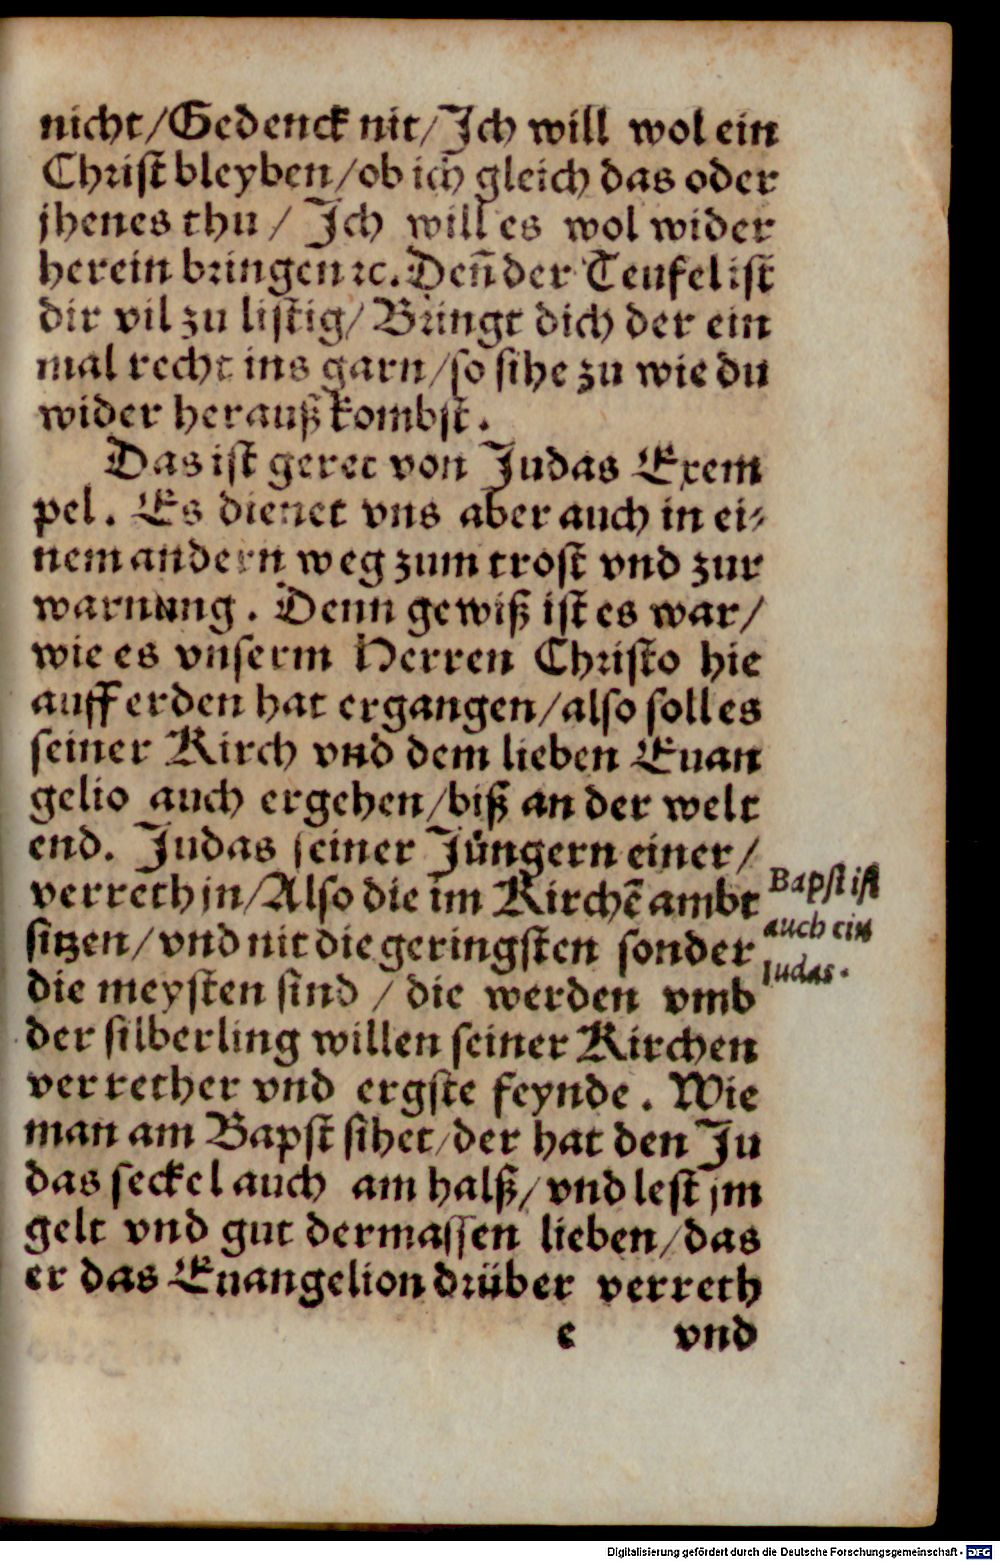 nicht/Gedenck nit/Jch will wol ein
Christ bleyben/ob ich gleich das oder
jhenes thu / Jch will es wol wider
herein bringen ꝛc. Deñ der Teufel ist
dir vil zu listig/ Bringt dich der ein
mal recht ins garn/so sihe zu wie du
wider herauß kombst.
Das ist geret von Judas Exem
pel. Es dienet vns aber auch in ei⸗
nem andern weg zum trost vnd zur
warnung. Denn gewiß ist es war/
wie es vnserm Herren Christo hie
auff erden hat ergangen/also soll es
seiner Kirch vnd dem lieben Euan
gelio auch ergehen/biß an der welt
end. Judas seiner Jüngern einer/
verreth jn/Also die im Kirchē ambt
sitzen/vnd nit die geringsten sonder
die meysten sind / die werden vmb
der silberling willen seiner Kirchen
verrether vnd ergste feynde. Wie
man am Bapst sihet/der hat den Ju
das seckel auch am halß/vnd lest jm
gelt vnd gut dermassen lieben/das
er das Euangelion drüber verreth
e vnd
Bapst ist
auch ein
Judas.
Digitalisierung gefördert durch die Deutsche Forschungsgemeinschaft - DFG